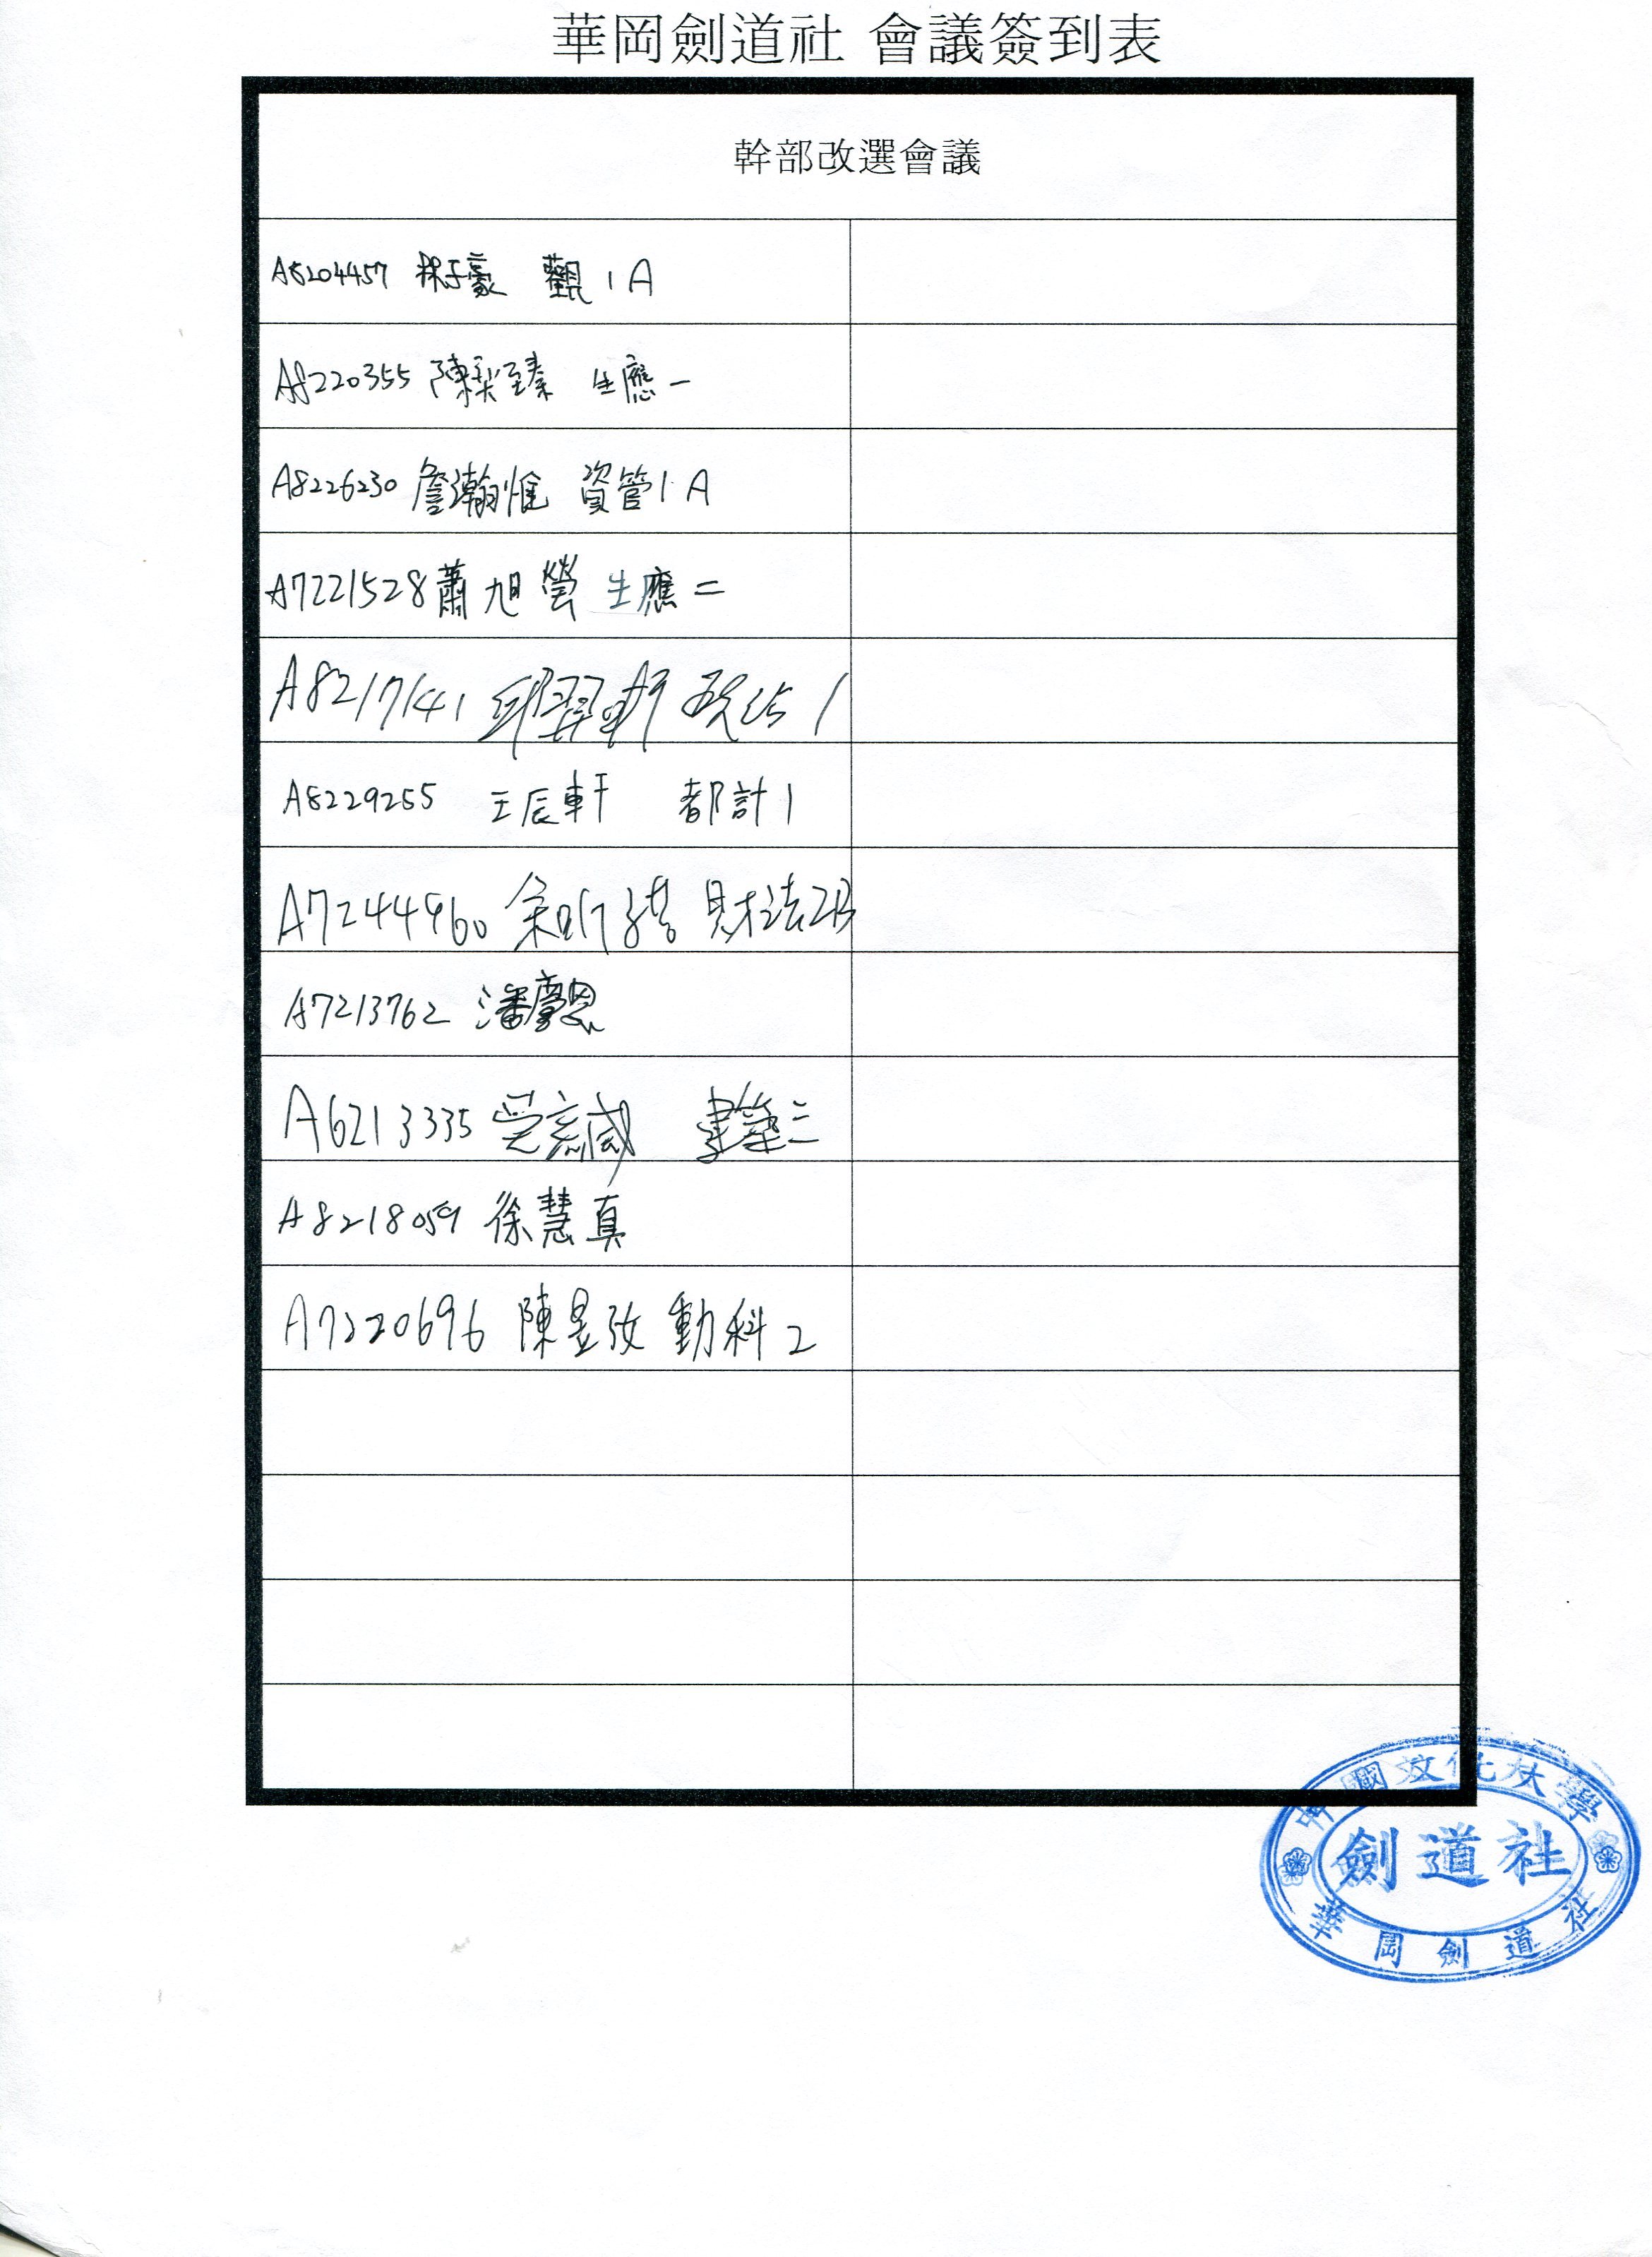 華岡劍道社 會議簽到表
幹部改選會議
A8204457 林子豪 觀1A
A8220355 陳 臻 生應一
A8226230 詹瀚惟 資管1A
A7221528 蕭旭瑩 生應二
A8217141 邱羿軒 政治1
A8229255 王辰軒 都計1
A7244960 余 財法2B
A7213762 潘 恩
A6213335 建築三
A8218059 徐慧真
A7220696 陳昱孜 動科2
中國文化大學
劍道社
華岡劍道社